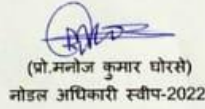 (प्रो.मनोज कुमार घोरसे)
नोडल अधिकारी स्वीप-2022